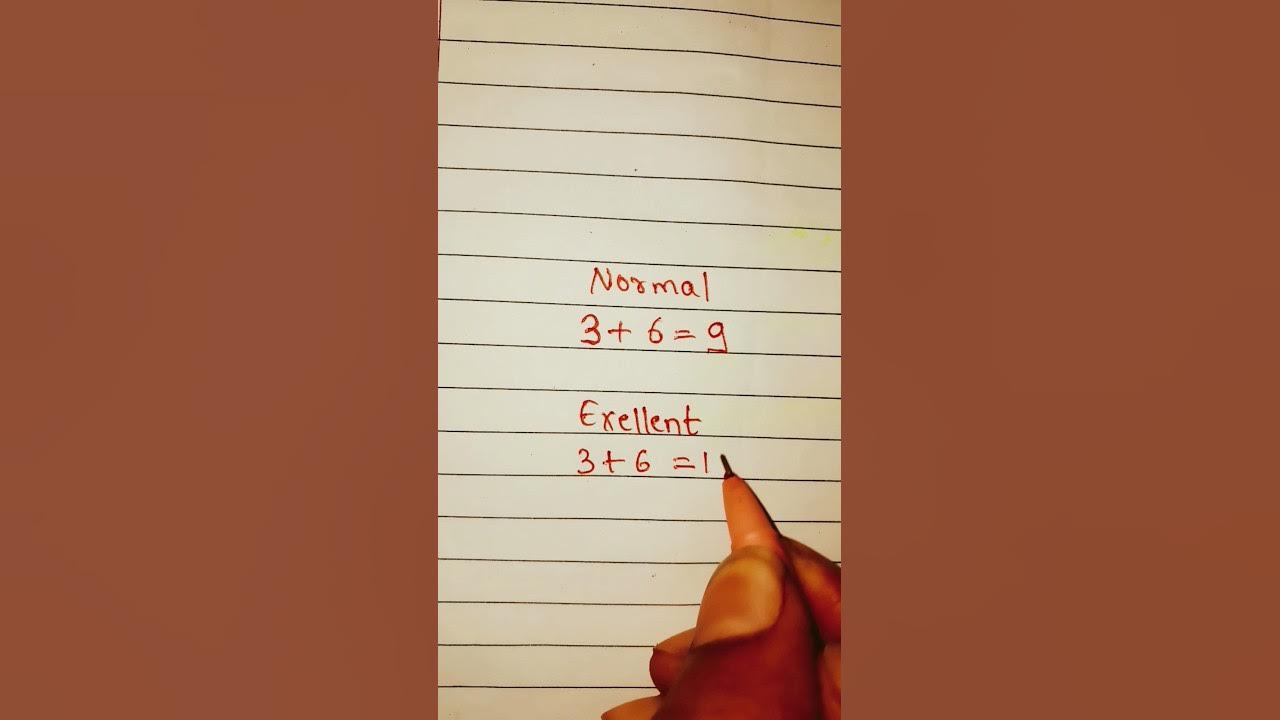 Normal
3 + 6 = 9
Exellent
3 + 6 = 1